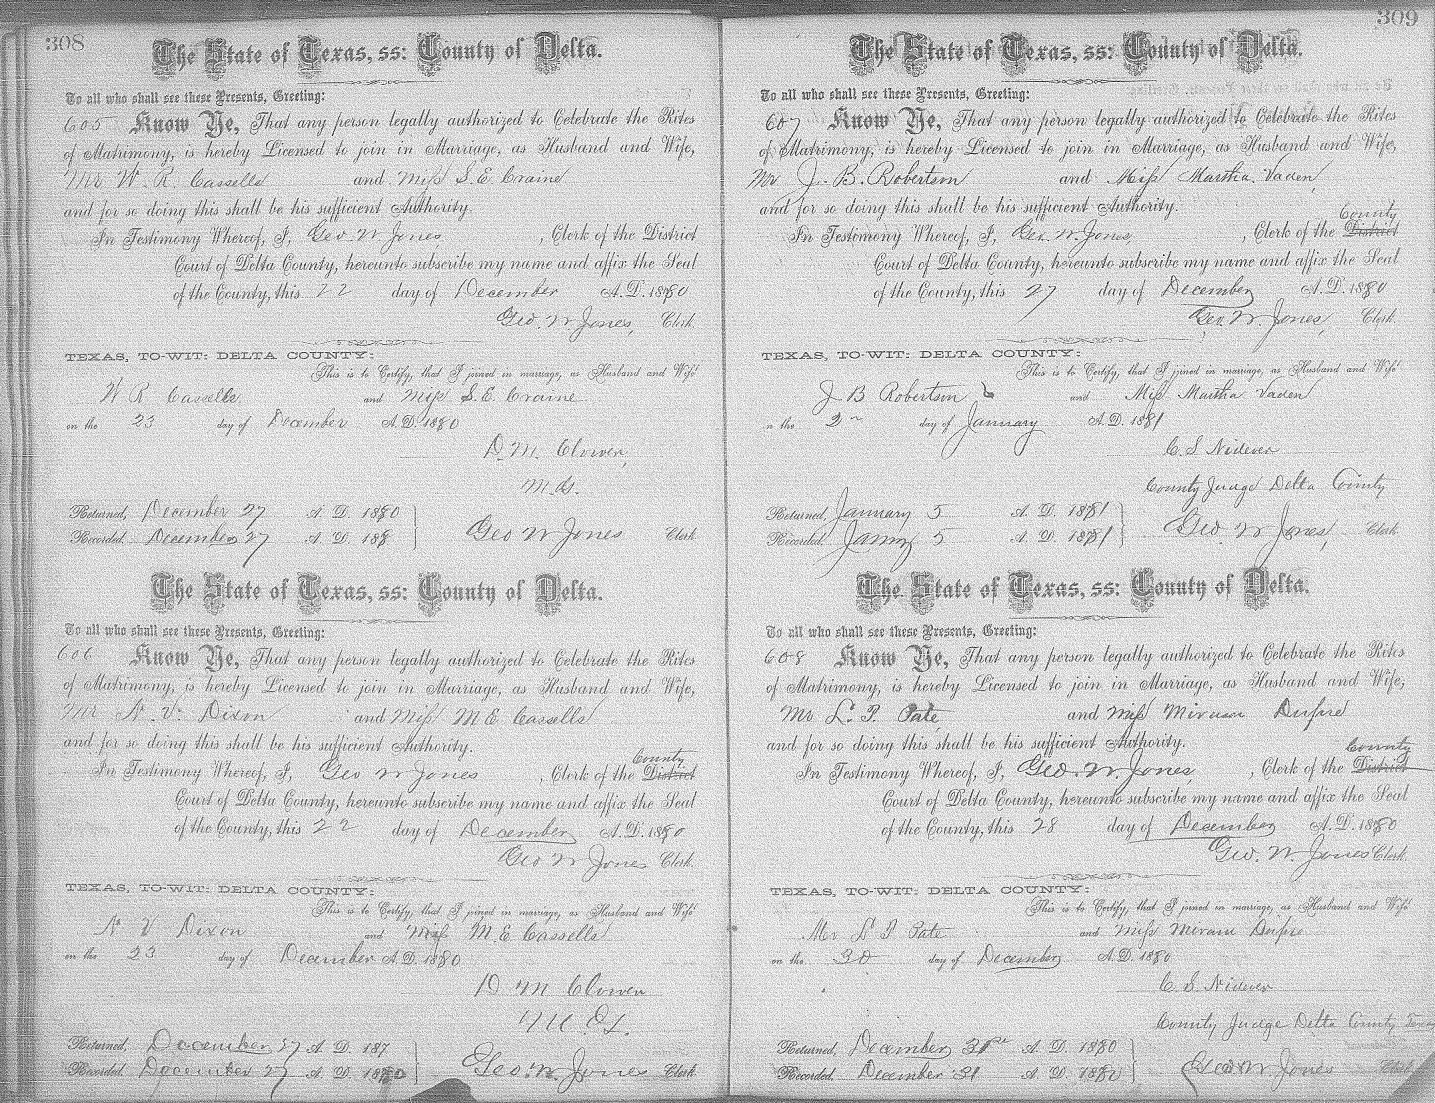 308
The State of Texas, ss: County of Delta.
To all who shall see these Presents, Greeting:
605 Know Ye, That any person legally authorized to Celebrate the Rites
of Matrimony, is hereby Licensed to join in Marriage, as Husband and Wife,
Mr W. R. Cassells and Miss S. E. Craine
and for so doing this shall be his sufficient Authority.
In Testimony Whereof, I, Geo W Jones, , Clerk of the District
Court of Delta County, hereunto subscribe my name and affix the Seal
of the County, this 22 day of December A.D. 1880
Geo. W Jones, Clerk.
TEXAS, TO-WIT: DELTA COUNTY:
This is to Certify, that I joined in marriage, as Husband and Wife
W R Cassells and Miss S. E. Craine
on the 23 day of December A.D. 1880
D. M. Clower,
M. G.
Returned, December 27 A. D. 1880
Recorded December 27 A. D. 188 Geo W Jones Clerk
The State of Texas, ss: County of Delta.
To all who shall see these Presents, Greeting:
606 Know Ye, That any person legally authorized to Celebrate the Rites
of Matrimony, is hereby Licensed to join in Marriage, as Husband and Wife,
Mr N. V. Dixon and Miss M E Cassells
and for so doing this shall be his sufficient Authority.
County
In Testimony Whereof, I, Geo W Jones , Clerk of the District
Court of Delta County, hereunto subscribe my name and affix the Seal
of the County, this 22 day of December A.D. 1880
Geo W Jones Clerk.
TEXAS, TO-WIT: DELTA COUNTY:
This is to Certify, that I joined in marriage, as Husband and Wife
N V Dixon and Miss M. E Cassells
on the 23 day of December A.D. 1880
D M Clower
Returned, December 27 A. D. 187
Recorded. December 27 A. D. 1880 Geo. W. Jones Clerk
309
The State of Texas, ss: County of Delta.
To all who shall see these Presents, Greeting:
607 Know Ye, That any person legally authorized to Celebrate the Rites
of Matrimony, is hereby Licensed to join in Marriage, as Husband and Wife,
Mr J. B. Robertson and Miss Martha Vaden
and for so doing this shall be his sufficient Authority.
County
In Testimony Whereof, I, Geo. W. Jones, , Clerk of the District
Court of Delta County, hereunto subscribe my name and affix the Seal
of the County, this 27 day of December A.D. 1880
Geo. W. Jones, Clerk.
TEXAS, TO-WIT: DELTA COUNTY:
This is to Certify, that I joined in marriage, as Husband and Wife
J B Robertson and Miss Martha Vaden
on the 2 day of January A.D. 1881
C. S Nidever
County Judge Delta County
Returned, January 5 A. D. 1881
Recorded. Janry 5 A. D. 1881 Geo. W Jones, Clerk
The State of Texas, ss: County of Delta.
To all who shall see these Presents, Greeting:
608 Know Ye, That any person legally authorized to Celebrate the Rites
of Matrimony, is hereby Licensed to join in Marriage, as Husband and Wife,
Mr L. P. Pate and Miss
and for so doing this shall be his sufficient Authority.
County
In Testimony Whereof, I, Geo. W. Jones, , Clerk of the District
Court of Delta County, hereunto subscribe my name and affix the Seal
of the County, this 28 day of December A.D. 1880
Geo. W. Jones Clerk.
TEXAS, TO-WIT: DELTA COUNTY:
This is to Certify, that I joined in marriage, as Husband and Wife
Mr L P Pate and Miss
on the 30 day of December A.D. 1880
C. S. Nidever
County Judge Delta County Texas
Returned, December 31st A. D. 1880
Recorded. December 31 A. D. 1880 Geo W Jones Clerk.